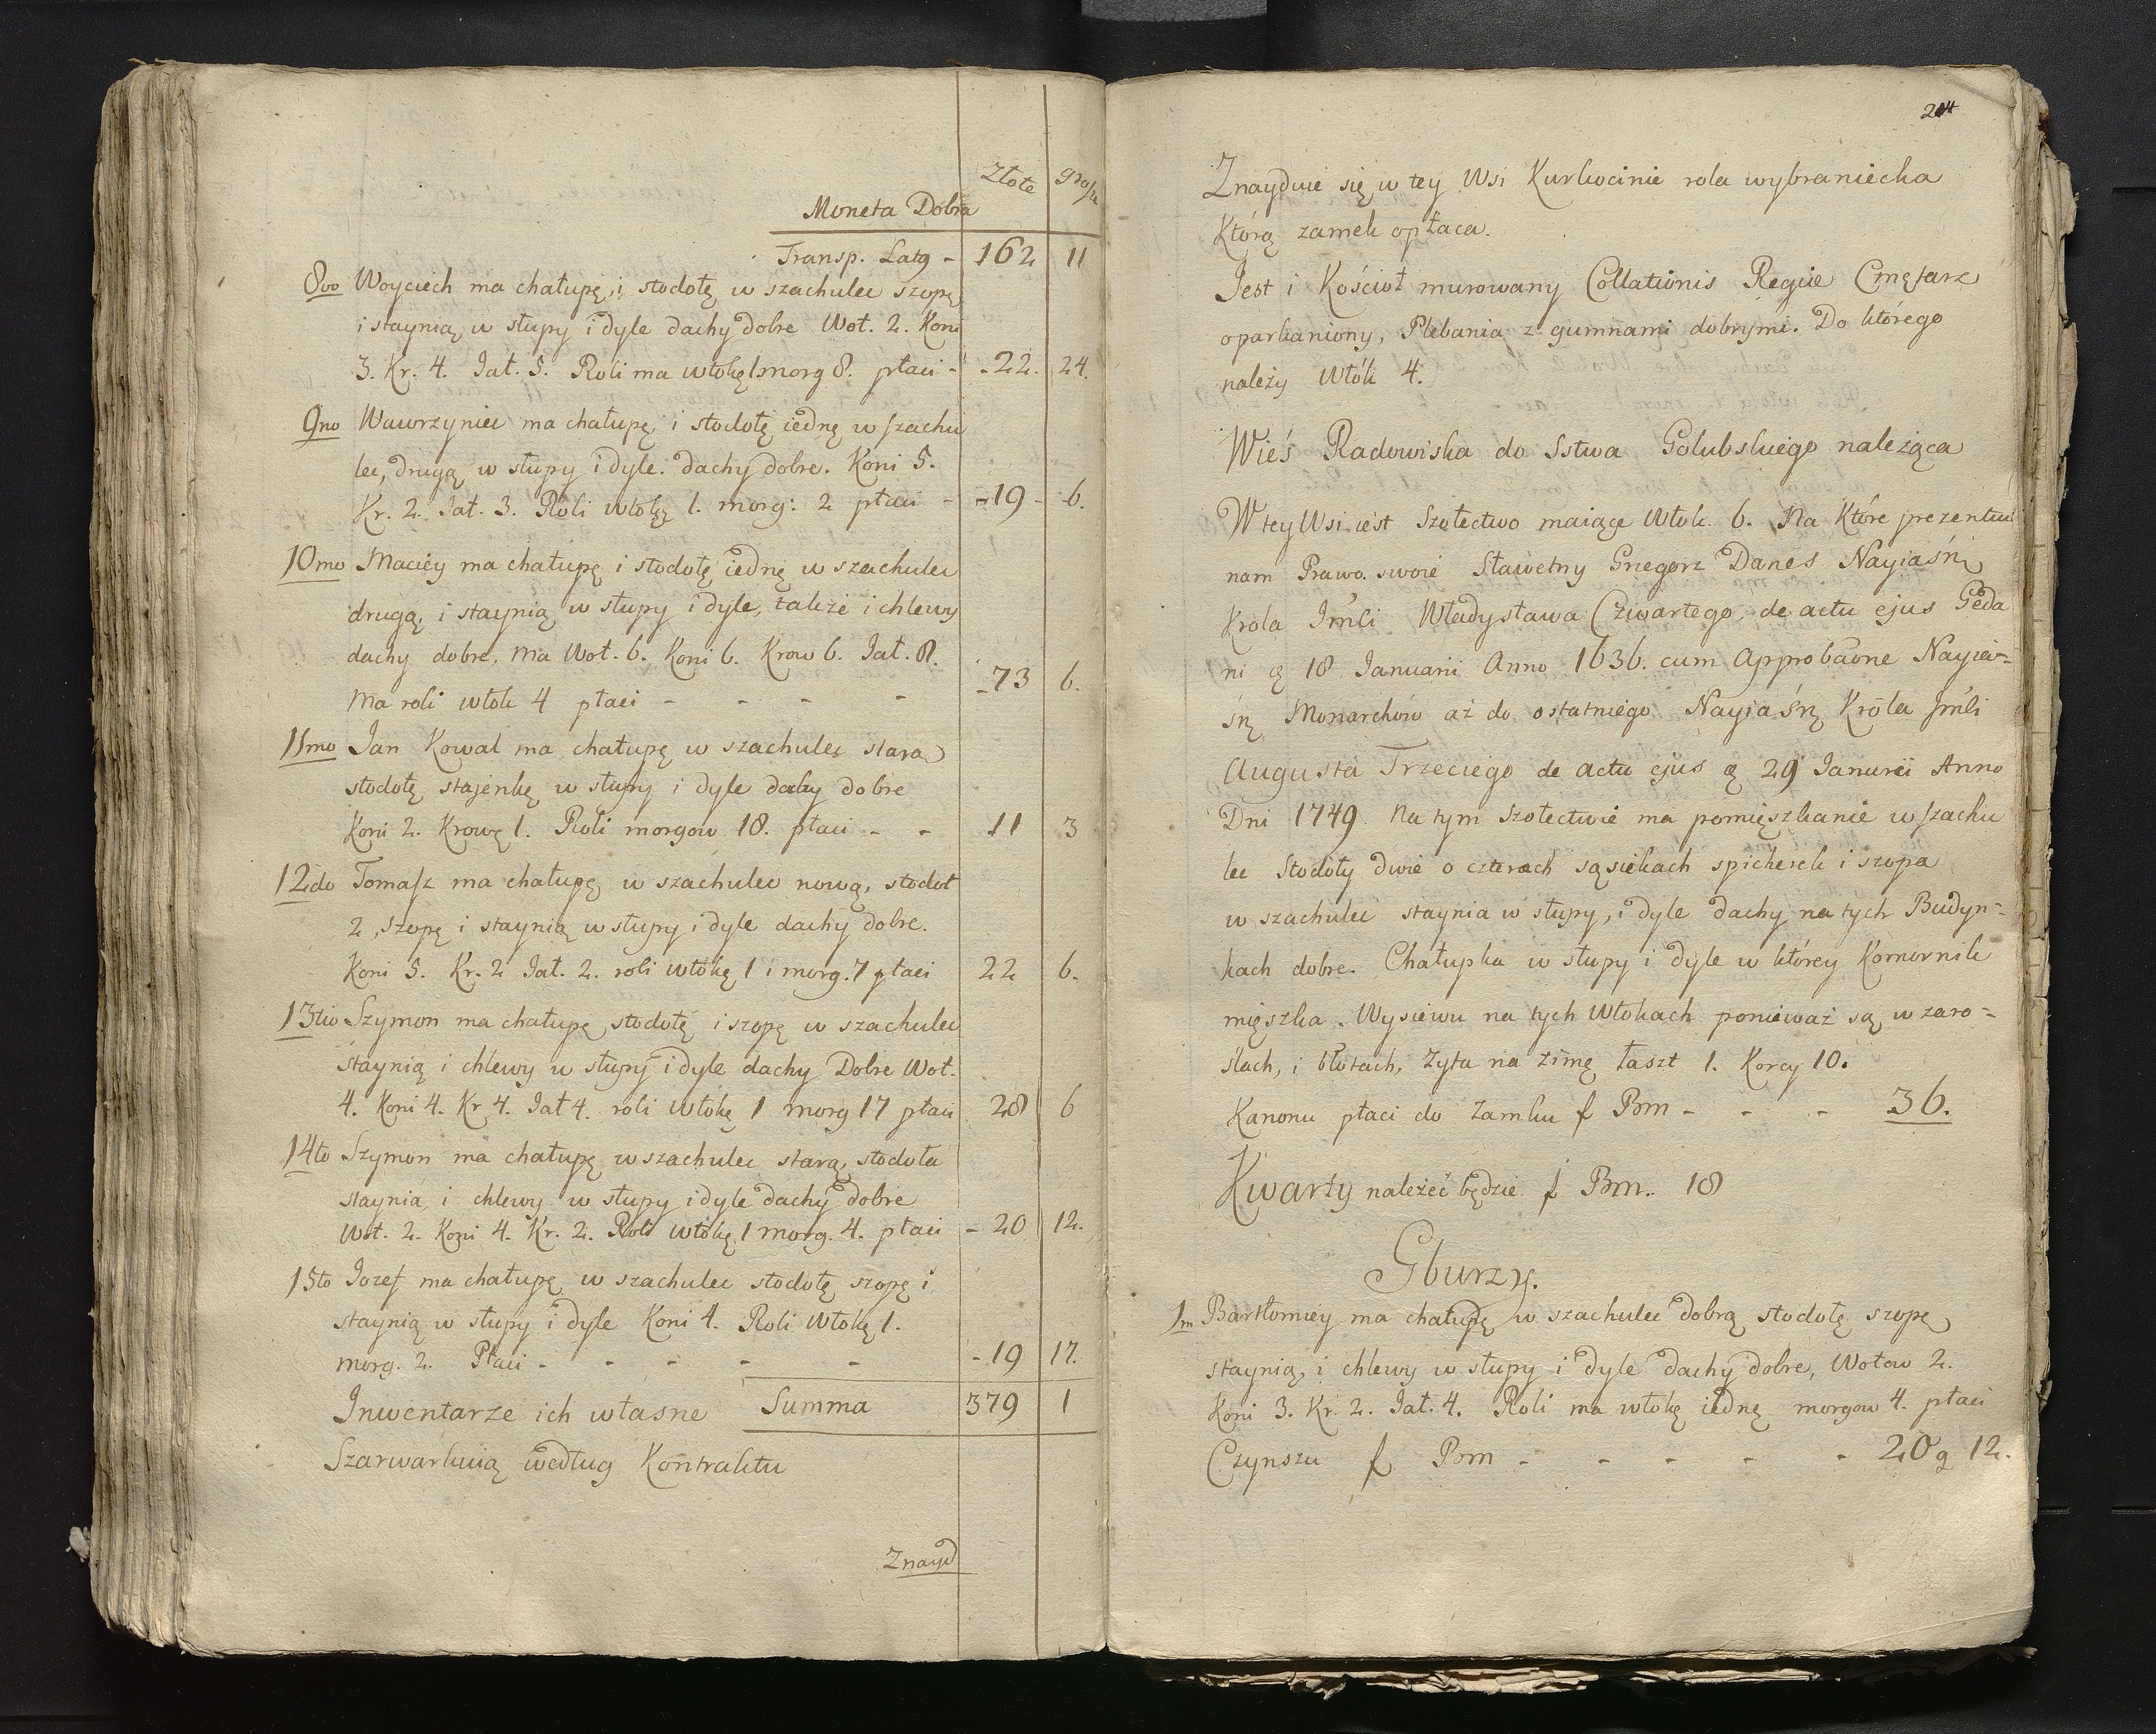 Złote grosze
Moneta Dobra
Transp. Latg - 162 11
8vo Woyciech ma chałupę, i stodołę w szachulec szopę
i staynią w słupy i dyle dachy dobre Woł. 2. Koni
3. Kr. 4. Jał. 5. Roli ma włokę 1 morg 8. płaci - 22. 24.
9no Wawrzyniec ma chałupę i stodołę iednę w szachu
lec, drugą w słupy i dyle. dachy dobre. Koni 5.
Kr. 2. Jał. 3. Roli włokę 1. morg: 2 płaci - 19 - 6.
10mo Maciey ma chałupę i stodołę iednę w szachulec
drugą i staynią w słupy i dyle, także i chlewy
dachy dobre, ma Woł. 6. Koni 6. Krow 6. Jał. 8.
Ma roli włok 4 płaci - - - - - 73 6.
11mo Jan Kowal ma chałupę w szachulec stara
stodołę stajenkę w słupy i dyle dachy dobre
Koni 2. Krowę 1. Roli morgow 18. płaci - - 11 3
12do Tomasz ma chałupę w szachulec nową, stodoł
2, szopę i staynią w słupy i dyle dachy dobre.
Koni 5. Kr. 2 Jał. 2. roli włokę 1 i morg. 7 płaci 22 6.
13tio Szymon ma chałupę, stodołę i szopę w szachulec
staynią i chlewy w słupy i dyle dachy Dobre Woł.
4. Koni 4. Kr 4. Jał 4. roli włokę 1 morg 17 płaci 28 6
14to Szymon ma chałupę w szachulec starą, stodoła
staynia, i chlewy w słupy i dyle dachy dobre
Woł. 2. Koni 4. Kr. 2. Roli włokę 1 morg. 4. płaci - 20 12.
15to Jozef ma chałupę w szachulec stodołę szopę i
staynią w słupy i dyle Koni 4. Roli Włokę 1.
morg. 2. Płaci - - - - - - 19 17.
Inwentarze ich własne Summa 379 1
Szarwarkuią według Kontraktu
Znayd
204
Znayduie się w tey Wsi Kurkocinie rola wybraniecka
Którą zamek opłaca.
Jest i Kościoł murowany Collationis Regiae Cmętarz
oparkaniony, Plebania z gumnami dobrymi. Do którego
należy Włók 4.
Wieś Radowiska do Sstwa Golubskiego należąca
W tey Wsi iest Szołectwo maiące Włok. 6. Na Które prezentui
nam Prawo swoie Sławetny Grzegorz Danes Nayiaśnị
Krola Jmci Władysława Czwartego, de actu ejus Geda
ni ą 18 Januarii Anno 1636. cum Approbaone Nayia=
śnị Monarchów aż do ostatniego Nayiaśnị Króla Jmci
Augusta Trzeciego de actu ejus ą 29 Januarii Anno
Dni 1749. Na tym Szołectwie ma pomięszkanie w szachu
lec Stodoły dwie o czterech sąsiekach spicherek i szopa
w szachulec staynia w słupy, i dyle dachy na tych Budyn=
kach dobre. Chałupka w słupy i dyle w którey Komornik
mięszka. Wysiewu na tych Włokach ponieważ są w zaro=
ślach, i błotach, Zyta na zimę łaszt 1. Korcy 10.
Kanonu płaci do Zamku f Prm - - - 36.
Kwarty należeć będzie f Prm. 18
Gburzy.
1m Bartłomiey ma chałupę w szachulec dobrą stodołę szopę,
staynią, i chlewy w słupy i dyle dachy dobre, Wołow 2.
Koni 3. Kr. 2. Jał. 4. Roli ma włokę iednę morgow 4. płaci
Czynszu f Prm - - - - - 20 g 12.